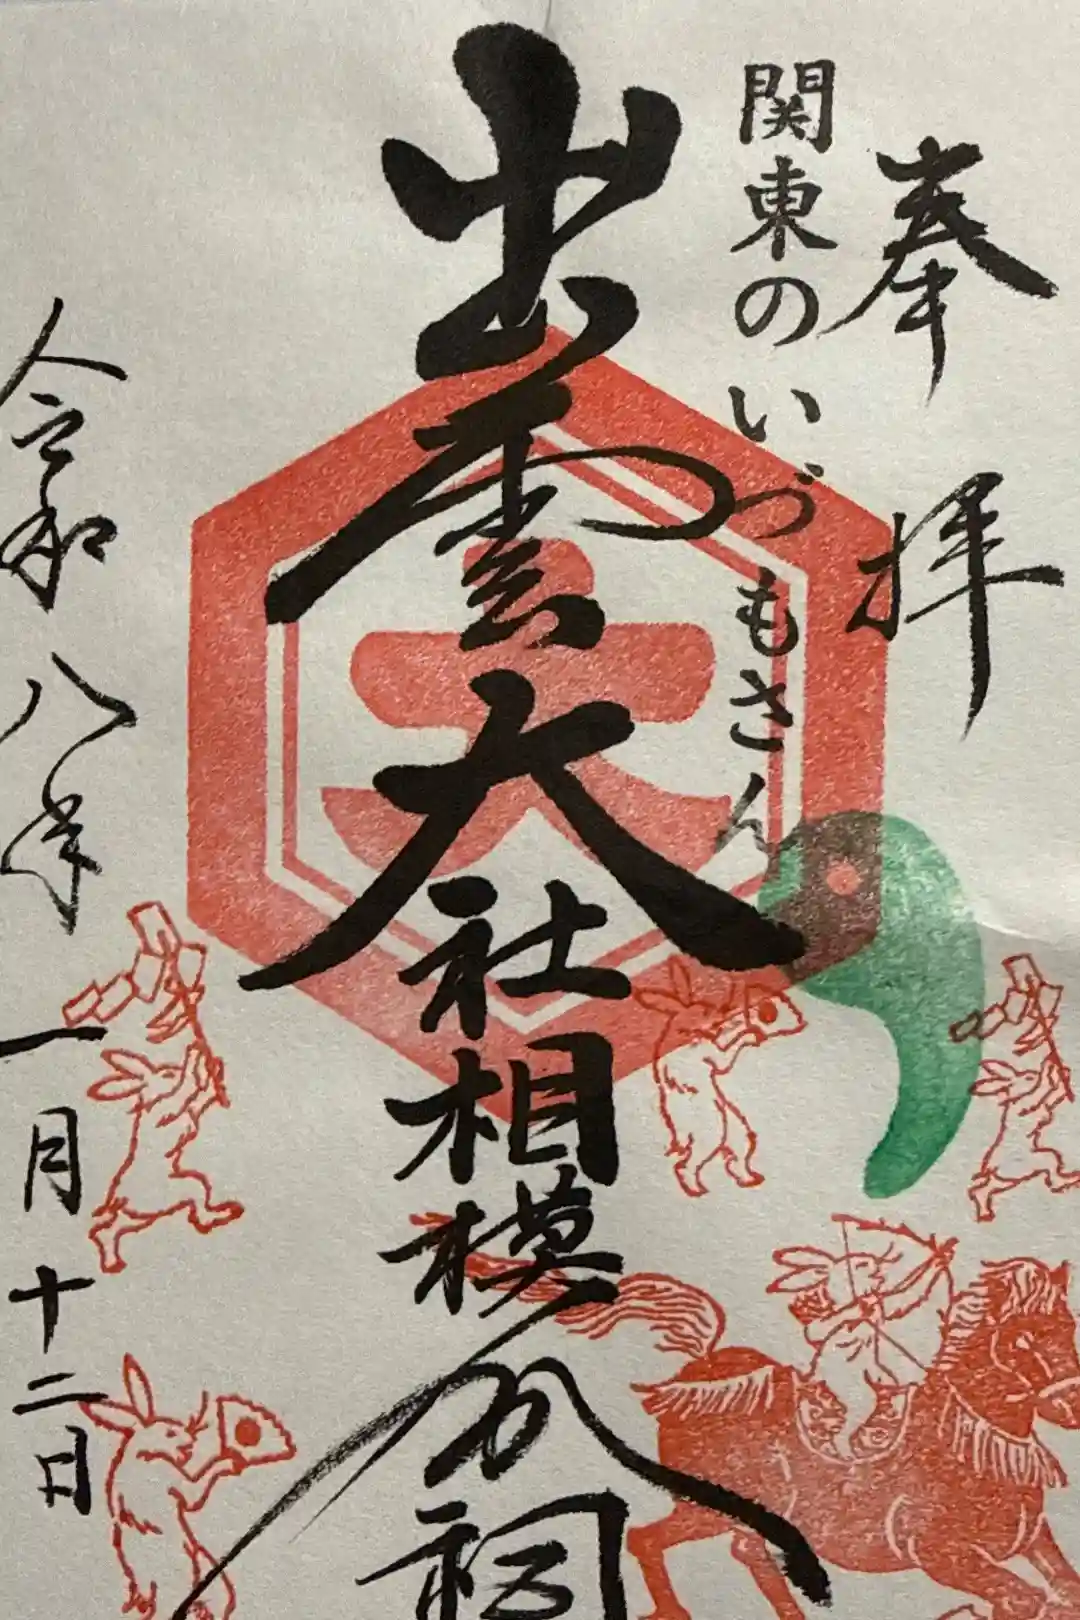 奉拝
関東のいづもさん
出雲大社相模分祠
令和八年一月十二日